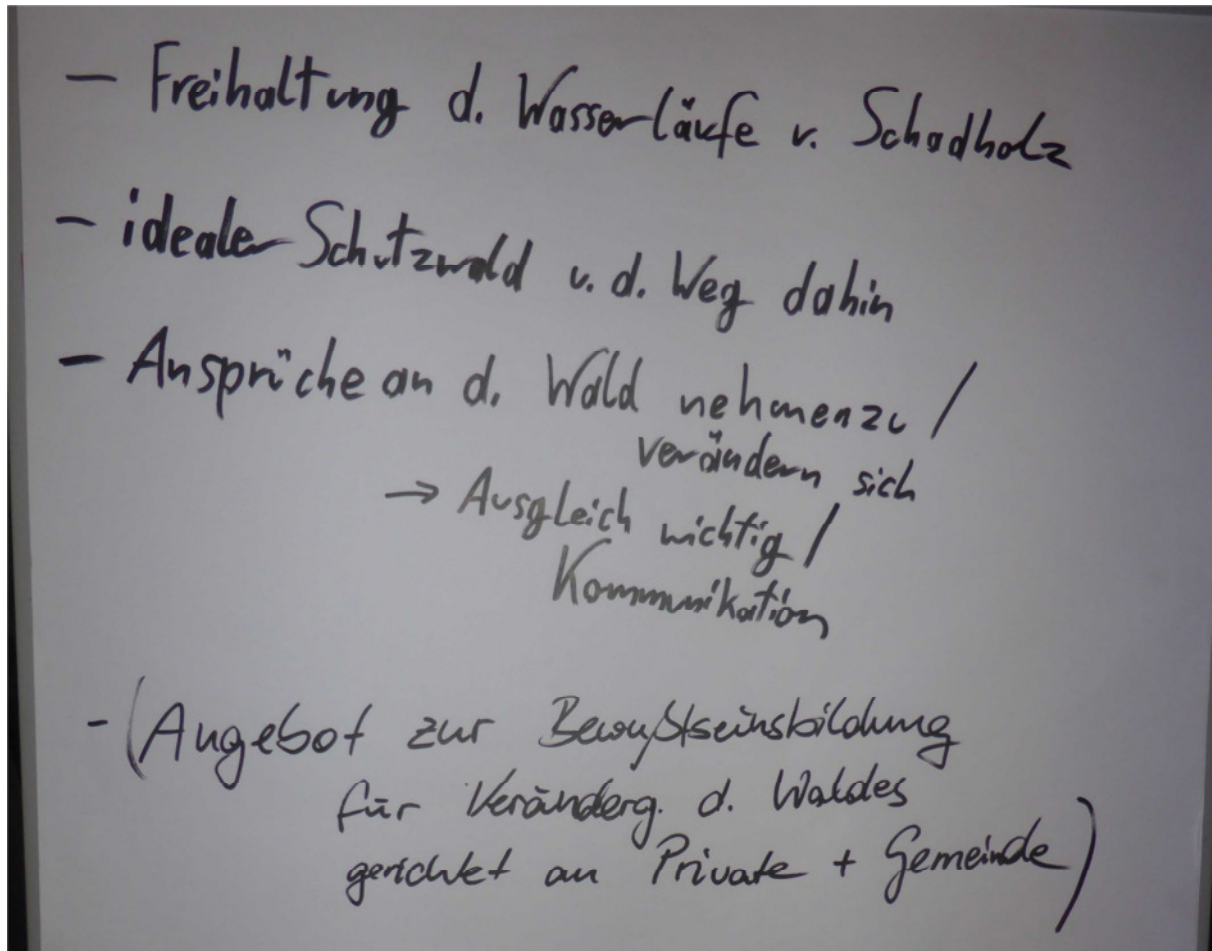 - Freihaltung d. Wasserläufe v. Schadholz
- idealer Schutzwald u. d. Weg dahin
- Ansprüche an d. Wald nehmen zu /
verändern sich
→ Ausgleich wichtig /
Kommunikation
- (Angebot zur Bewußtseinsbildung
für Veränderg. d. Waldes
gerichtet an Private + Gemeinde)